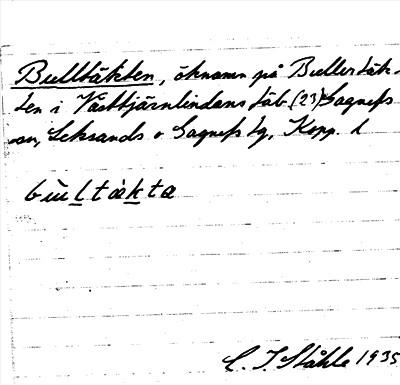 Bulltäkten, öknamn på Bullertäk-
ten i Västtjärnlindans täb (23) Gagnefs
sn, Leksands o Gagnefs tg, Kopp. l
bulltàkta
C. I. Ståhle 1935